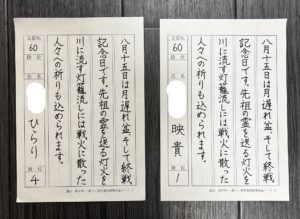 八月十五日は月遅れ盆、そして終戦
記念日です。先祖の霊を送る灯火を
川に流す灯籠流しには、戦火に散った
人々への祈りも込められます。
支部No.
60
段位
氏名
映貴
順位
1
八月十五日は月遅れ盆、そして終戦
記念日です。先祖の霊を送る灯火を
川に流す灯籠流しには、戦火に散った
人々への祈りも込められます。
支部No.
60
段位
氏名
ひらり
順位
4